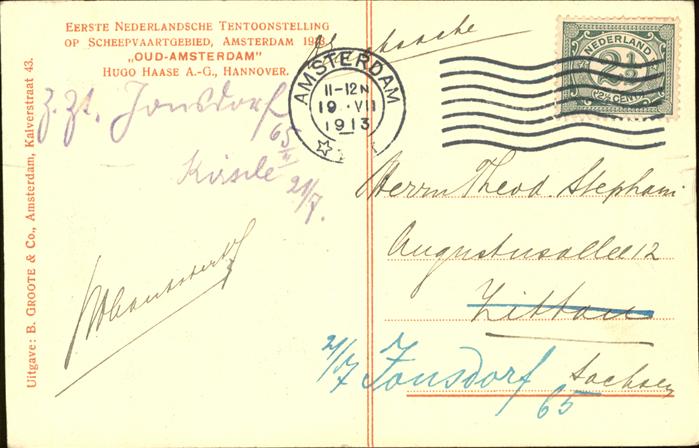 EERSTE NEDERLANDSCHE TENTOONSTELLING
OP SCHEEPVAARTGEBIED, AMSTERDAM 1913
„OUD-AMSTERDAM"
HUGO HAASE A.-G., HANNOVER.
Uitgave: B. GROOTE & Co., Amsterdam, Kalverstraat 43.
z. Zt. Jonsdorf
65
21/7.
AMSTERDAM
11-12 N
19 · VII
1913
NEDERLAND
2½
2½ CENT
Herrn Theod Stephani
Augustusallee 12
Zittau
21/7 Jonsdorf
65
Sachsen